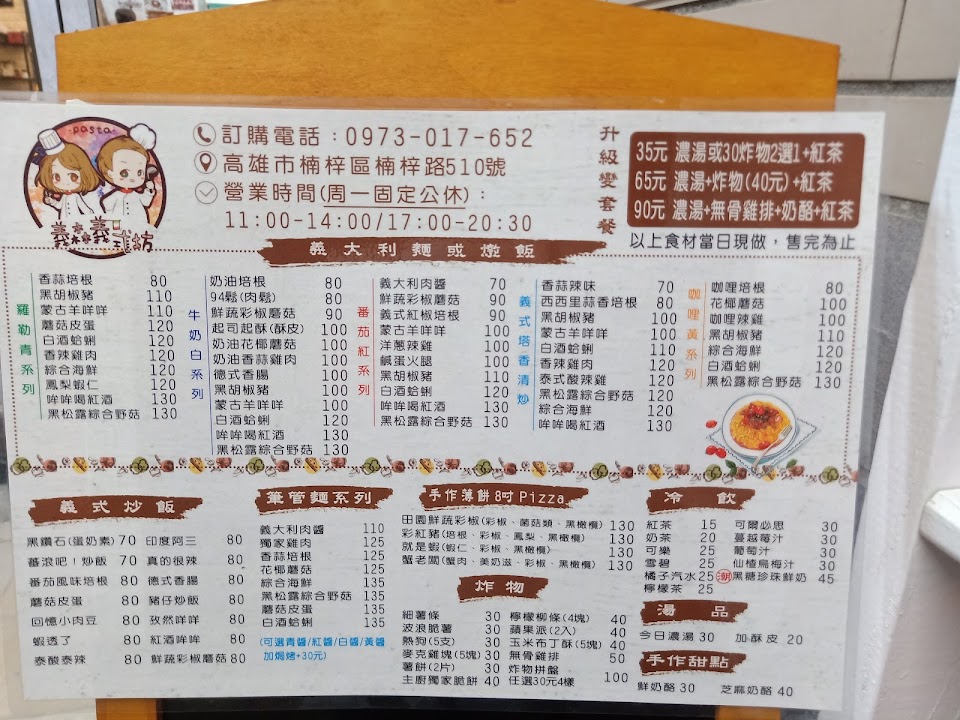 pasta
義森義語坊
訂購電話：0973-017-652
高雄市楠梓區楠梓路510號
營業時間(周一固定公休)：
11:00-14:00/17:00-20:30
升級變套餐
35元 濃湯或30炸物2選1+紅茶
65元 濃湯+炸物(40元)+紅茶
90元 濃湯+無骨雞排+奶酪+紅茶
以上食材當日現做，售完為止
義大利麵或燉飯
羅勒青系列
香蒜培根 80
黑胡椒豬 110
蒙古羊咩咩 110
蘑菇皮蛋 120
白酒蛤蜊 120
香辣雞肉 120
綜合海鮮 120
鳳梨蝦仁 120
哞哞喝紅酒 130
黑松露綜合野菇 130
牛奶白系列
奶油培根 80
94鬆(肉鬆) 80
鮮蔬彩椒蘑菇 90
起司起酥(酥皮) 100
奶油花椰蘑菇 100
奶油香蒜雞肉 100
德式香腸 100
黑胡椒豬 100
蒙古羊咩咩 100
白酒蛤蜊 110
哞哞喝紅酒 130
黑松露綜合野菇 130
番茄紅系列
義大利肉醬 70
鮮蔬彩椒蘑菇 90
義式紅椒培根 90
蒙古羊咩咩 100
洋蔥辣雞 100
鹹蛋火腿 100
黑胡椒豬 110
白酒蛤蜊 110
哞哞喝紅酒 130
黑松露綜合野菇 130
義式塔香清炒
香蒜辣味 70
西西里蒜香培根 80
黑胡椒豬 100
蒙古羊咩咩 100
白酒蛤蜊 110
香辣雞肉 120
泰式酸辣雞 120
黑松露綜合野菇 120
綜合海鮮 120
哞哞喝紅酒 130
咖哩黃系列
咖哩培根 80
花椰蘑菇 100
咖哩辣雞 100
黑胡椒豬 110
綜合海鮮 120
白酒蛤蜊 120
黑松露綜合野菇 130
義式炒飯
黑鑽石(蛋奶素) 70 印度阿三 80
蕃滾吧！炒飯 70 真的很辣 80
番茄風味培根 80 德式香腸 80
蘑菇皮蛋 80 豬仔炒飯 80
回憶小肉豆 80 孜然咩咩 80
蝦透了 80 紅酒哞哞 80
泰酸泰辣 80 鮮蔬彩椒蘑菇 80
筆管麵系列
義大利肉醬 110
獨家雞肉 125
香蒜培根 125
花椰蘑菇 125
綜合海鮮 135
黑松露綜合野菇 135
蘑菇皮蛋 135
白酒蛤蜊 135
(可選青醬/紅醬/白醬/黃醬
加焗烤+30元)
手作薄餅8吋Pizza
田園鮮蔬彩椒(彩椒、菌菇類、黑橄欖) 130
彩紅豬(培根、彩椒、鳳梨、黑橄欖) 130
就是蝦(蝦仁、彩椒、黑橄欖) 130
蟹老闆(蟹肉、美奶滋、彩椒、黑橄欖) 130
炸物
細薯條 30 檸檬柳條(4塊) 40
波浪脆薯 30 蘋果派(2入) 40
熱狗(5支) 30 玉米布丁酥(5塊) 40
麥克雞塊(5塊) 30 無骨雞排 50
薯餅(2片) 30 炸物拼盤
主廚獨家脆餅 40 任選30元4樣 100
冷飲
紅茶 15 可爾必思 30
奶茶 20 蔓越莓汁 30
可樂 25 葡萄汁 30
雪碧 25 仙楂烏梅汁 30
橘子汽水 25 潮 黑糖珍珠鮮奶 45
檸檬茶 25
湯品
今日濃湯 30 加酥皮 20
手作甜點
鮮奶酪 30 芝麻奶酪 40